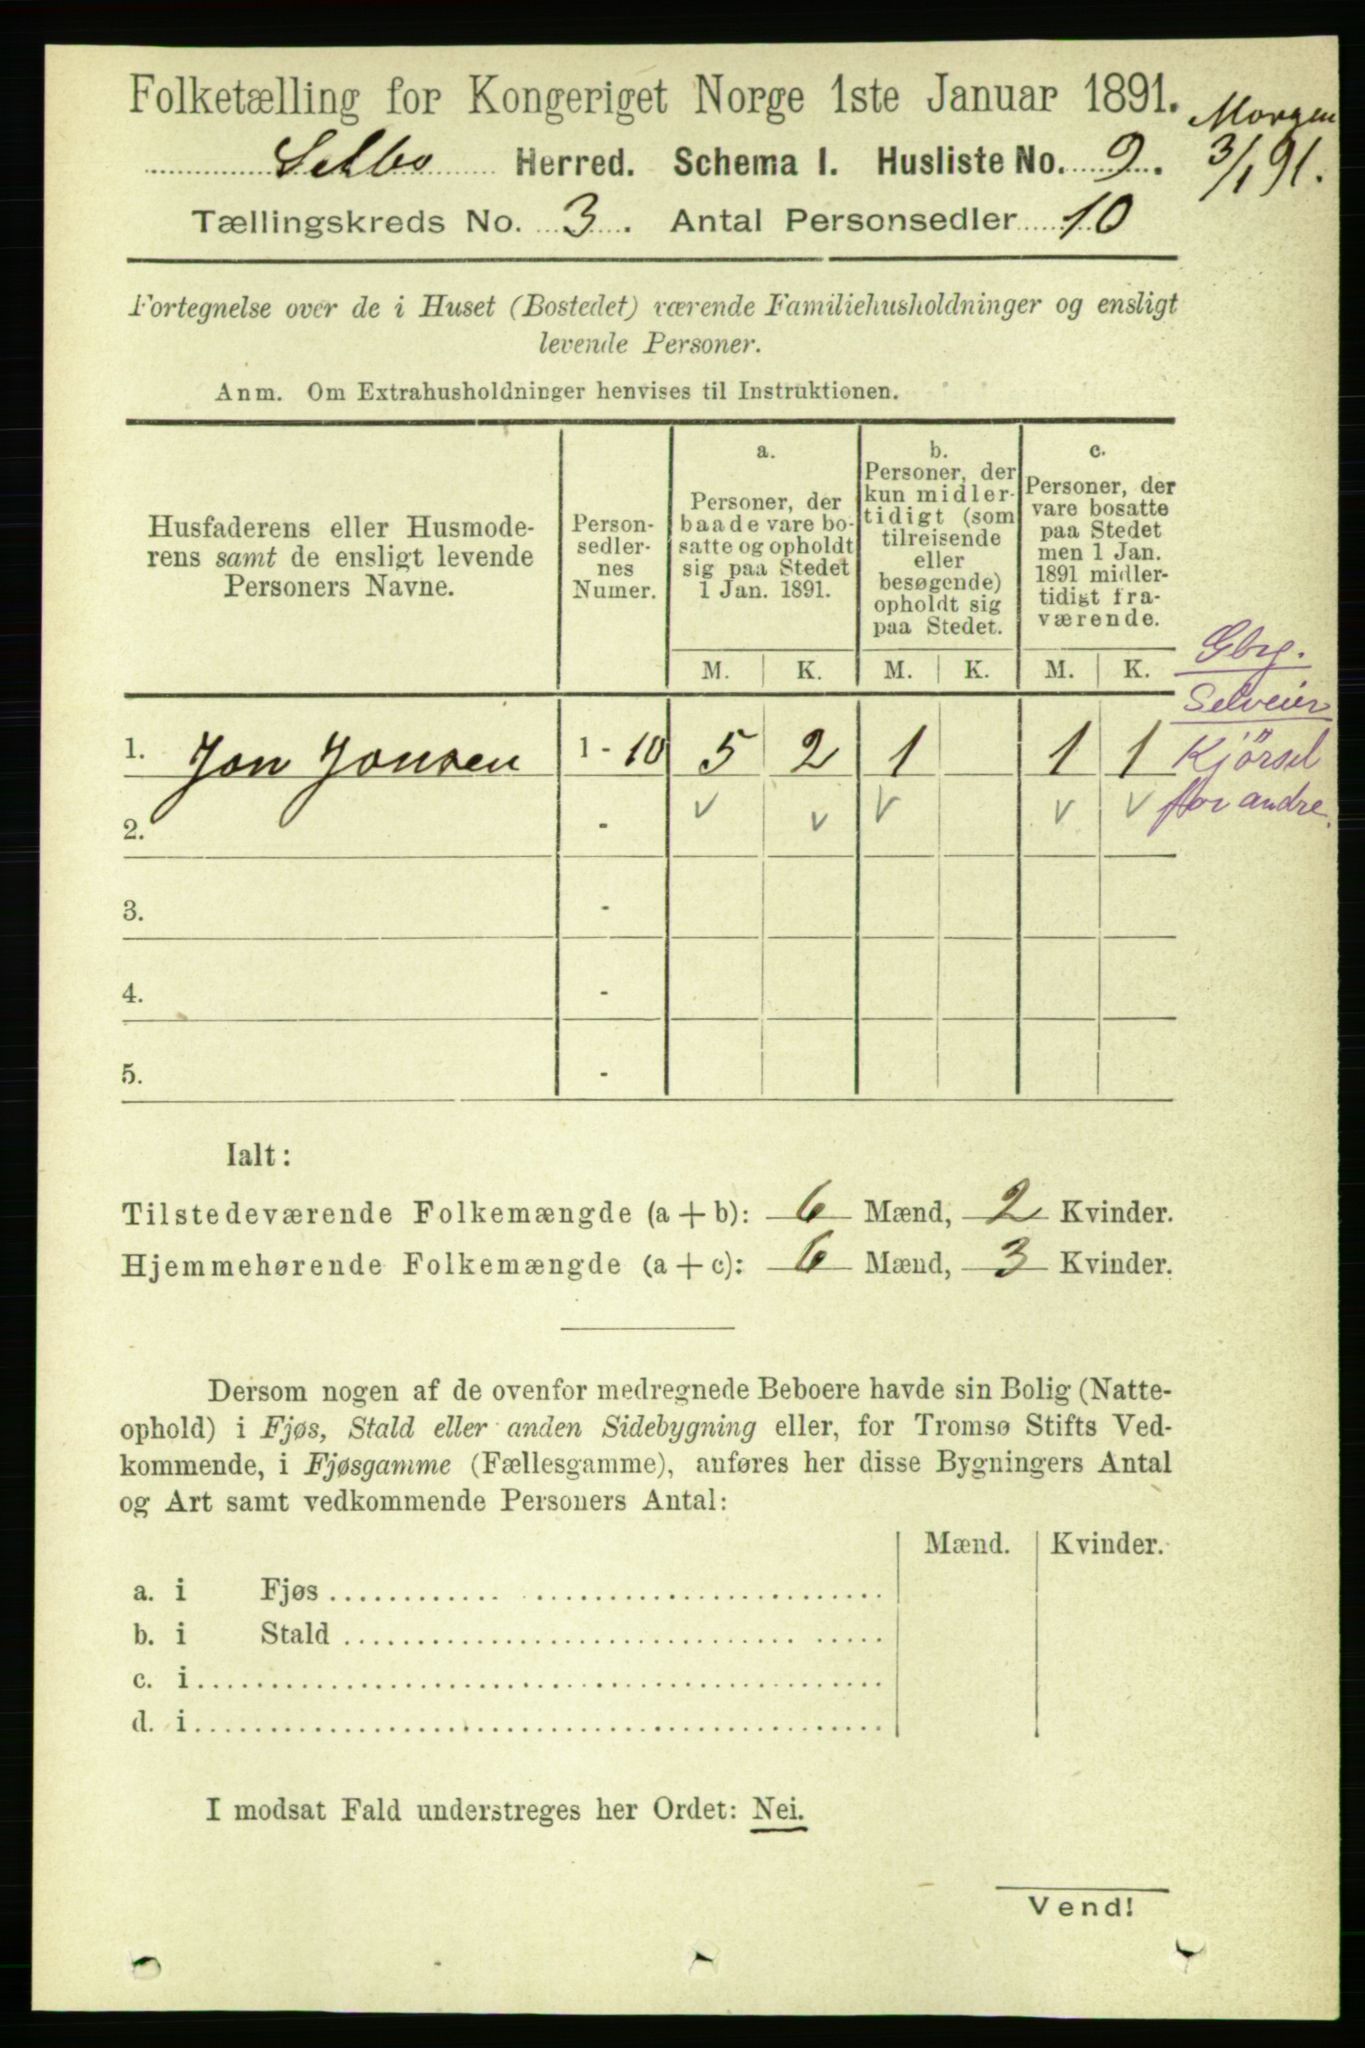 Folketælling for Kongeriget Norge 1ste Januar 1891.
Morgen
3/1 91.
Selbo Herred. Schema I. Husliste No. 9.
Tællingskreds No. 3. Antal Personsedler 10
Fortegnelse over de i Huset (Bostedet) værende Familiehusholdninger og ensligt
levende Personer.
Anm. Om Extrahusholdninger henvises til Instruktionen.
Husfaderens eller Husmode-
rens samt de ensligt levende
Personers Navne.
Person-
sedler-
nes
Numer.
a.
Personer, der
baade vare bo-
satte og opholdt
sig paa Stedet
1 Jan. 1891.
b.
Personer, der
kun midler-
tidigt (som
tilreisende
eller
besøgende)
opholdt sig
paa Stedet.
c.
Personer, der
vare bosatte
paa Stedet
men 1 Jan.
1891 midler-
tidigt fra-
værende.
M. K. M. K. M. K.
Gbr.
Selveier
Kjörsel
for andre.
1. Jon Jonsen 1 - 10 5 2 1 1 1
v v v v v
2. -
3. -
4. -
5. -
Ialt:
Tilstedeværende Folkemængde (a + b): 6 Mænd, 2 Kvinder.
Hjemmehørende Folkemængde (a + c): 6 Mænd, 3 Kvinder.
Dersom nogen af de ovenfor medregnede Beboere havde sin Bolig (Natte-
ophold) i Fjøs, Stald eller anden Sidebygning eller, for Tromsø Stifts Ved-
kommende, i Fjøsgamme (Fællesgamme), anføres her disse Bygningers Antal
og Art samt vedkommende Personers Antal:
Mænd. Kvinder.
a. i Fjøs
b. i Stald
c. i
d. i
I modsat Fald understreges her Ordet: Nei.
Vend!